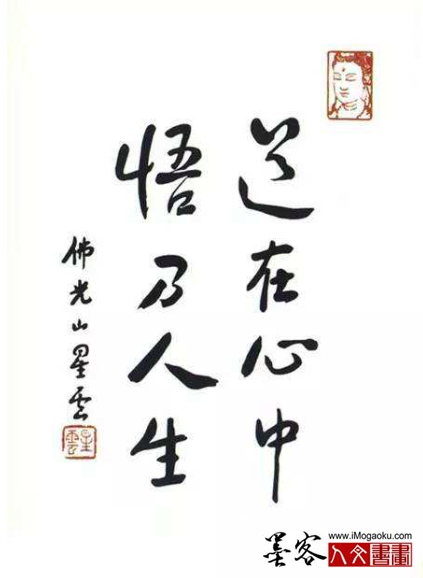 道在心中
悟乃人生
佛光山星雲
星雲
墨客
www.iMogaoku.com
人文書畫